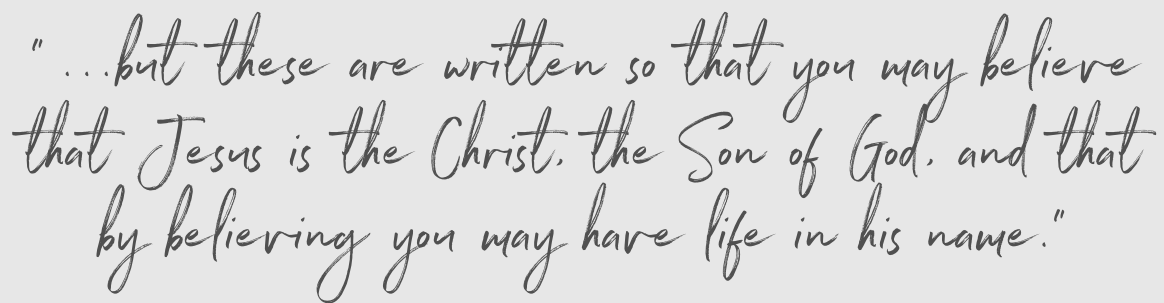 "...but these are written so that you may believe
that Jesus is the Christ, the Son of God, and that
by believing you may have life in his name."